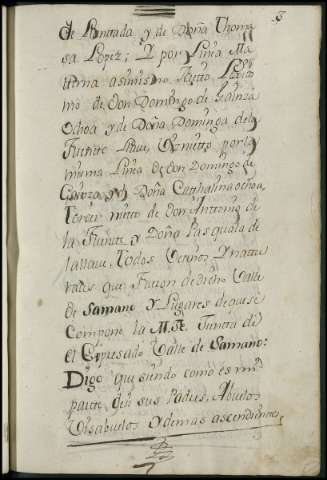 3
de Pontrada y de Doña Thoma
sa Lopez; Y por Linia Ma
terna asimismo Nieto Lexiti
mo de don Domingo de Gainza
Ochoa y de Doña Dominga dela
Fuente Bisnieto por la
misma Linia de don Domingo de
Gainza y Doña Catthalina Ochoa,
Tercer nieto de don Antonio de
la Fuente y Doña Pasquala de
Todos Vecinos Y natu
rales que fueron de dicho Valle
de Samano y Lugares de que se
Compone la M. N. Junta de
el Expresado Valle de Samano:
Digo que siendo como es mi
parte, y sus Padres, Abuelos
Visabuelos y demas ascendientes